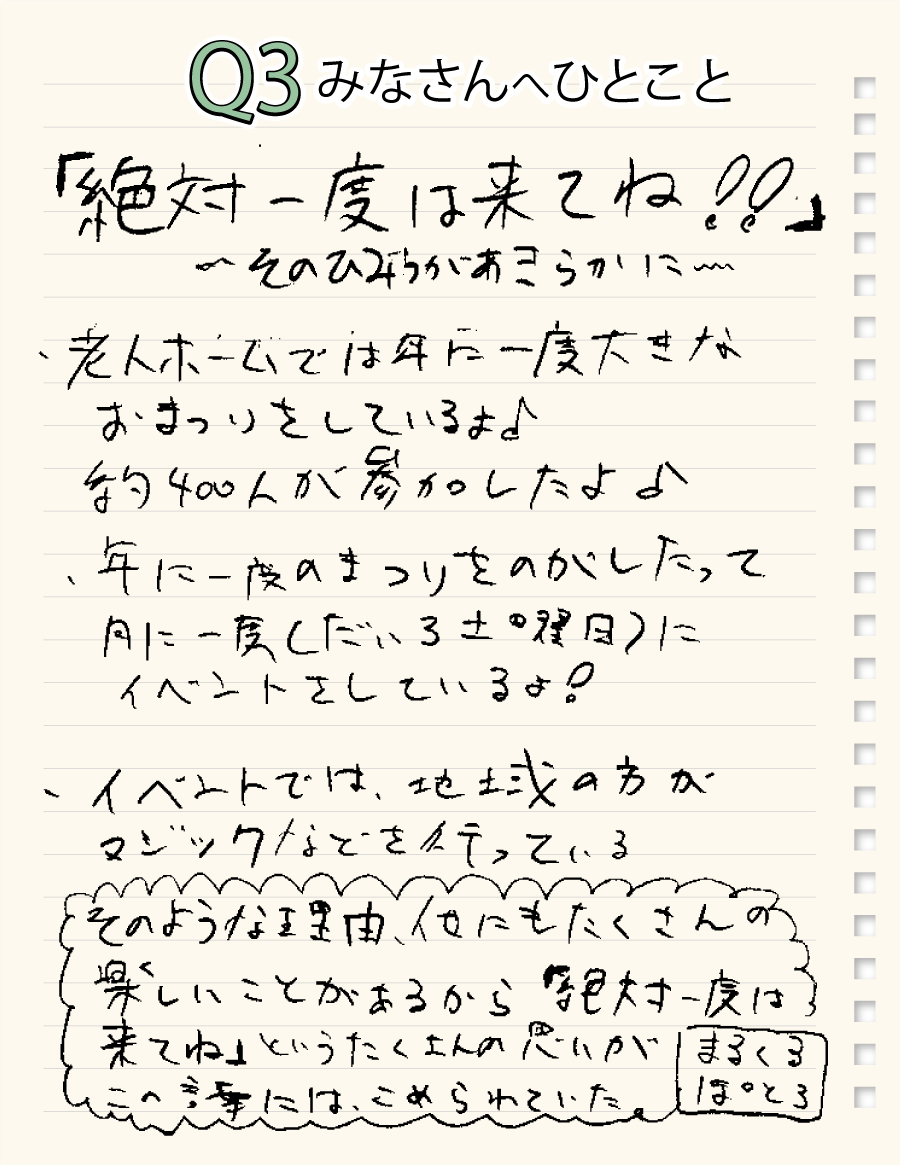 Q3 みなさんへひとこと
「絶対一度は来てね!!」
~そのひみつがあきらかに~
、老人ホームでは年に一度大きな
おまつりをしているよ♪
約400人が参加したよ♪
、年に一度のまつりをのがしたって
月に一度(だい3土曜日)に
イベントをしているよ!
、イベントでは、地域の方が
マジックなどを行っている
そのような理由、他にもたくさんの
楽しいことがあるから『絶対一度は
来てね」というたくさんの思いが
この言葉には、こめられていた。
まるくる
ぽところ